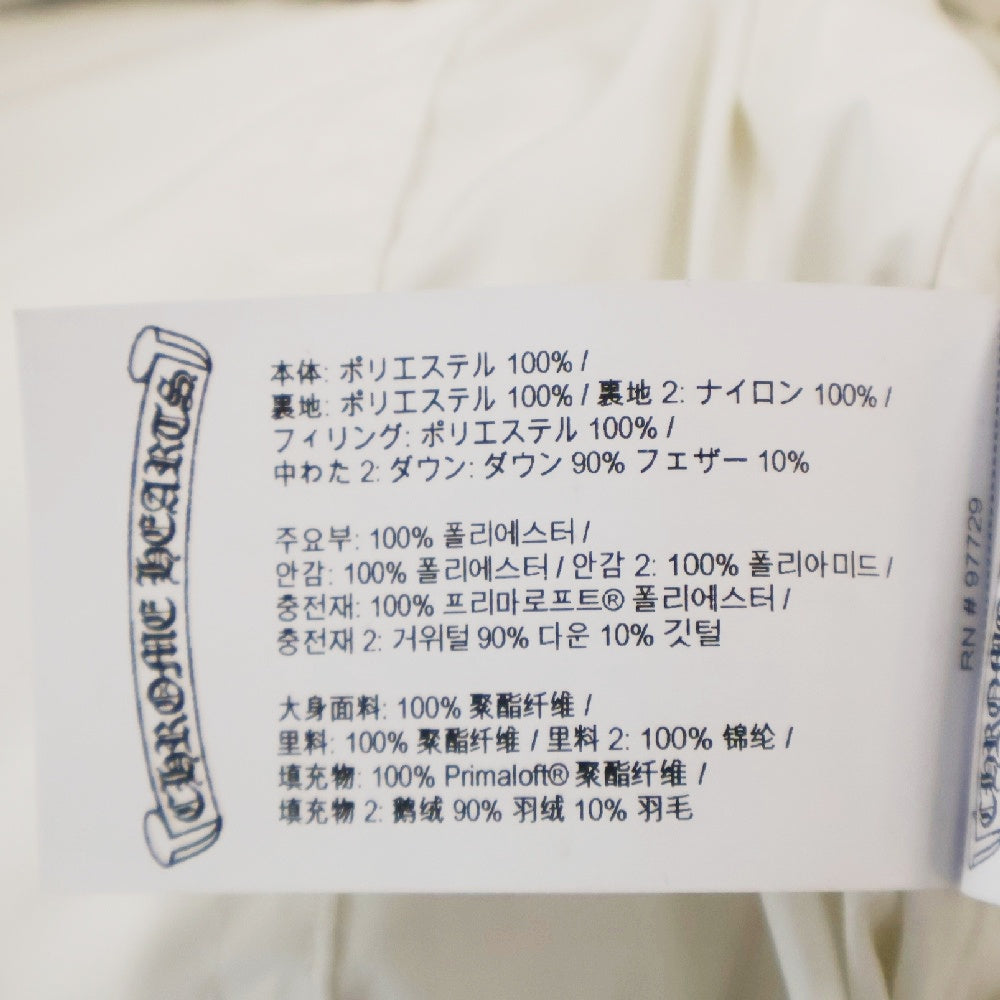 CHROME HEARTS
本体: ポリエステル 100% /
裏地: ポリエステル 100% / 裏地 2: ナイロン 100% /
フィリング: ポリエステル 100% /
中わた 2: ダウン: ダウン 90% フェザー 10%
주요부: 100% 폴리에스터 /
안감: 100% 폴리에스터 / 안감 2: 100% 폴리아미드 /
충전재: 100% 프리마로프트® 폴리에스터 /
충전재 2: 거위털 90% 다운 10% 깃털
大身面料: 100% 聚酯纤维 /
里料: 100% 聚酯纤维 / 里料 2: 100% 锦纶 /
填充物: 100% Primaloft® 聚酯纤维 /
填充物 2: 鹅绒 90% 羽绒 10% 羽毛
RN # 97729